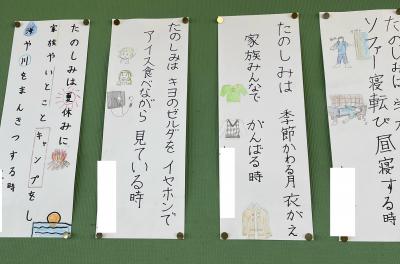 たのしみは
ソファー寝転び 昼寝する時
たのしみは 季節かわる月 衣がえ
家族みんなで がんばる時
たのしみは キヨのゼルダを イヤホンで
アイス食べながら 見ている時
たのしみは 夏休みに
家族やいとこと キャンプをし
海や川をまんきつする時